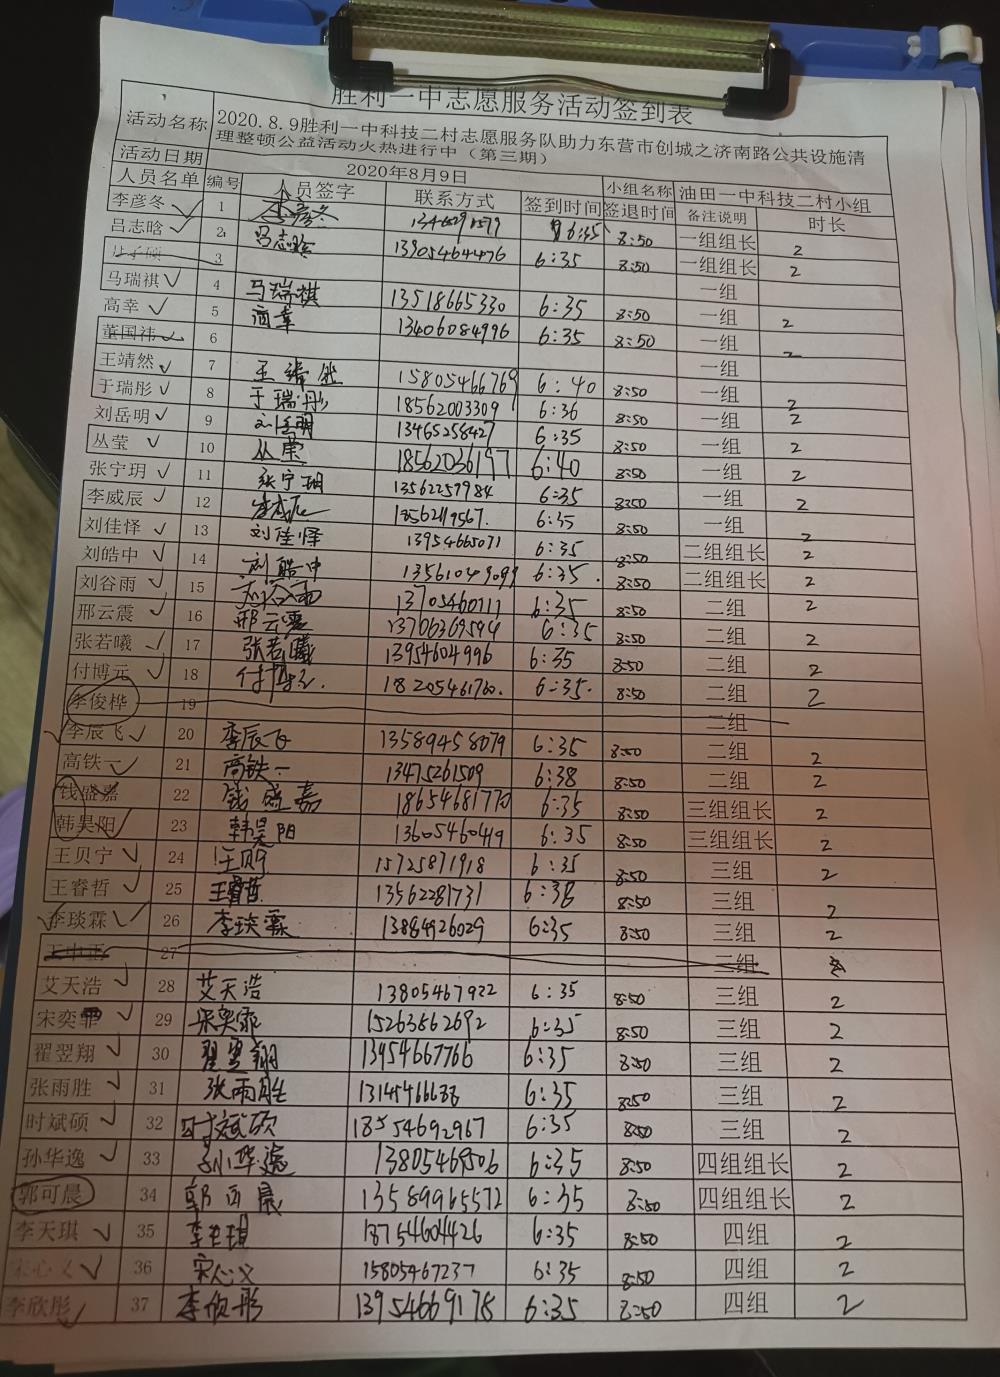 胜利一中志愿服务活动签到表
活动名称 2020.8.9胜利一中科技二村志愿服务队助力东营市创城之济南路公共设施清
理整顿公益活动火热进行中（第三期）
活动日期 2020年8月9日 小组名称 油田一中科技二村小组
人员名单 编号 人员签字 联系方式 签到时间 签退时间 备注说明 时长
李彦冬 1 李彦冬 6:35 8:50 一组组长 2
吕志晗 2 吕志晗 13905464476 6:35 8:50 一组组长 2
3 一组
马瑞祺 4 马瑞祺 13518665330 6:35 8:50 一组 2
高幸 5 高幸 13406084996 6:35 8:50 一组 2
董国祎 6 一组
王靖然 7 王靖然 15805466769 6:40 8:50 一组 2
于瑞彤 8 于瑞彤 18562003309 6:36 8:50 一组 2
刘岳明 9 刘岳明 13465258427 6:35 8:50 一组 2
丛莹 10 丛莹 18562036197 6:40 8:50 一组 2
张宁玥 11 张宁玥 13562257984 6:35 8:50 一组 2
李威辰 12 6:35 8:50 一组 2
刘佳怿 13 刘佳怿 13954665071 6:35 8:50 二组组长 2
刘皓中 14 刘皓中 13561049099 6:35 8:50 二组组长 2
刘谷雨 15 刘谷雨 13705460711 6:35 8:50 二组 2
邢云震 16 邢云震 13706369594 6:35 8:50 二组 2
张若曦 17 张若曦 13954604996 6:35 8:50 二组 2
付博元 18 付博元 18205461760. 6:35. 8:50 二组 2
李俊桦 19 二组
李辰飞 20 李辰飞 13589458079 6:35 8:50 二组 2
高铁一 21 高铁一 13475261509 6:38 8:50 二组 2
钱盛嘉 22 钱盛嘉 18654681770 6:35 8:50 三组组长 2
韩昊阳 23 韩昊阳 13605460419 6:35 8:50 三组组长 2
王贝宁 24 王贝宁 15725871918 6:35 8:50 三组 2
王睿哲 25 王睿哲 13562281731 6:38 8:50 三组 2
李琰霖 26 李琰霖 13884926029 6:35 8:50 三组 2
王中正 27 三组
艾天浩 28 艾天浩 13805467922 6:35 8:50 三组 2
宋奕霏 29 宋奕霏 15263862692 6:35 8:50 三组 2
翟翌翔 30 翟翌翔 13954667766 6:35 8:50 三组 2
张雨胜 31 张雨胜 6:35 8:50 三组 2
时斌硕 32 时斌硕 18554692967 6:35 8:50 三组 2
孙华逸 33 孙华逸 13805469506 6:35 8:50 四组组长 2
郭可晨 34 郭可晨 13589965572 6:35 8:50 四组组长 2
李天琪 35 李天琪 13754604426 6:35 8:50 四组 2
宋心义 36 宋心义 15805467237 6:35 8:50 四组 2
李欣彤 37 李欣彤 13954669178 6:35 8:50 四组 2